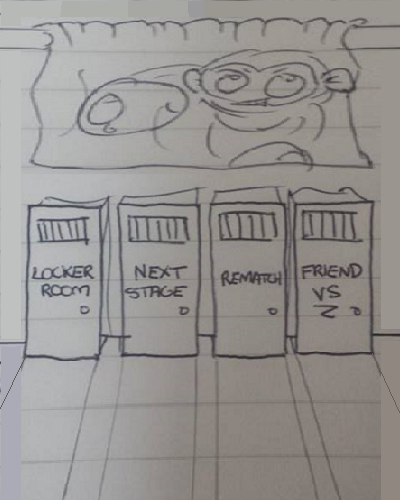 LOCKER
ROOM
NEXT
STAGE
REMATCH
FRIEND
VS